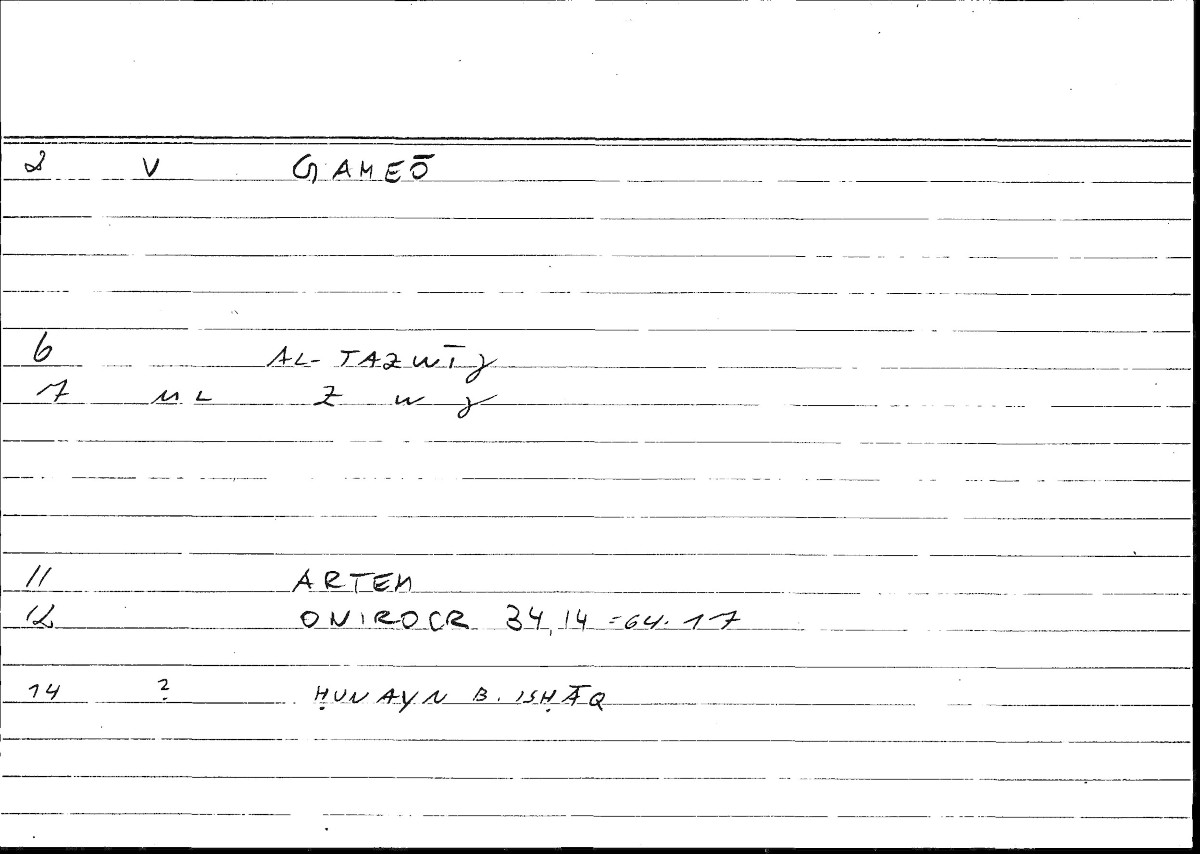 2 V GAMEŌ
6 AL-TAZWĪJ
7 ML Z W J
11 ARTEM
12 ONIROCR 34,14 = 64.17
14 ? ḤUNAYN B. ISḤĀQ